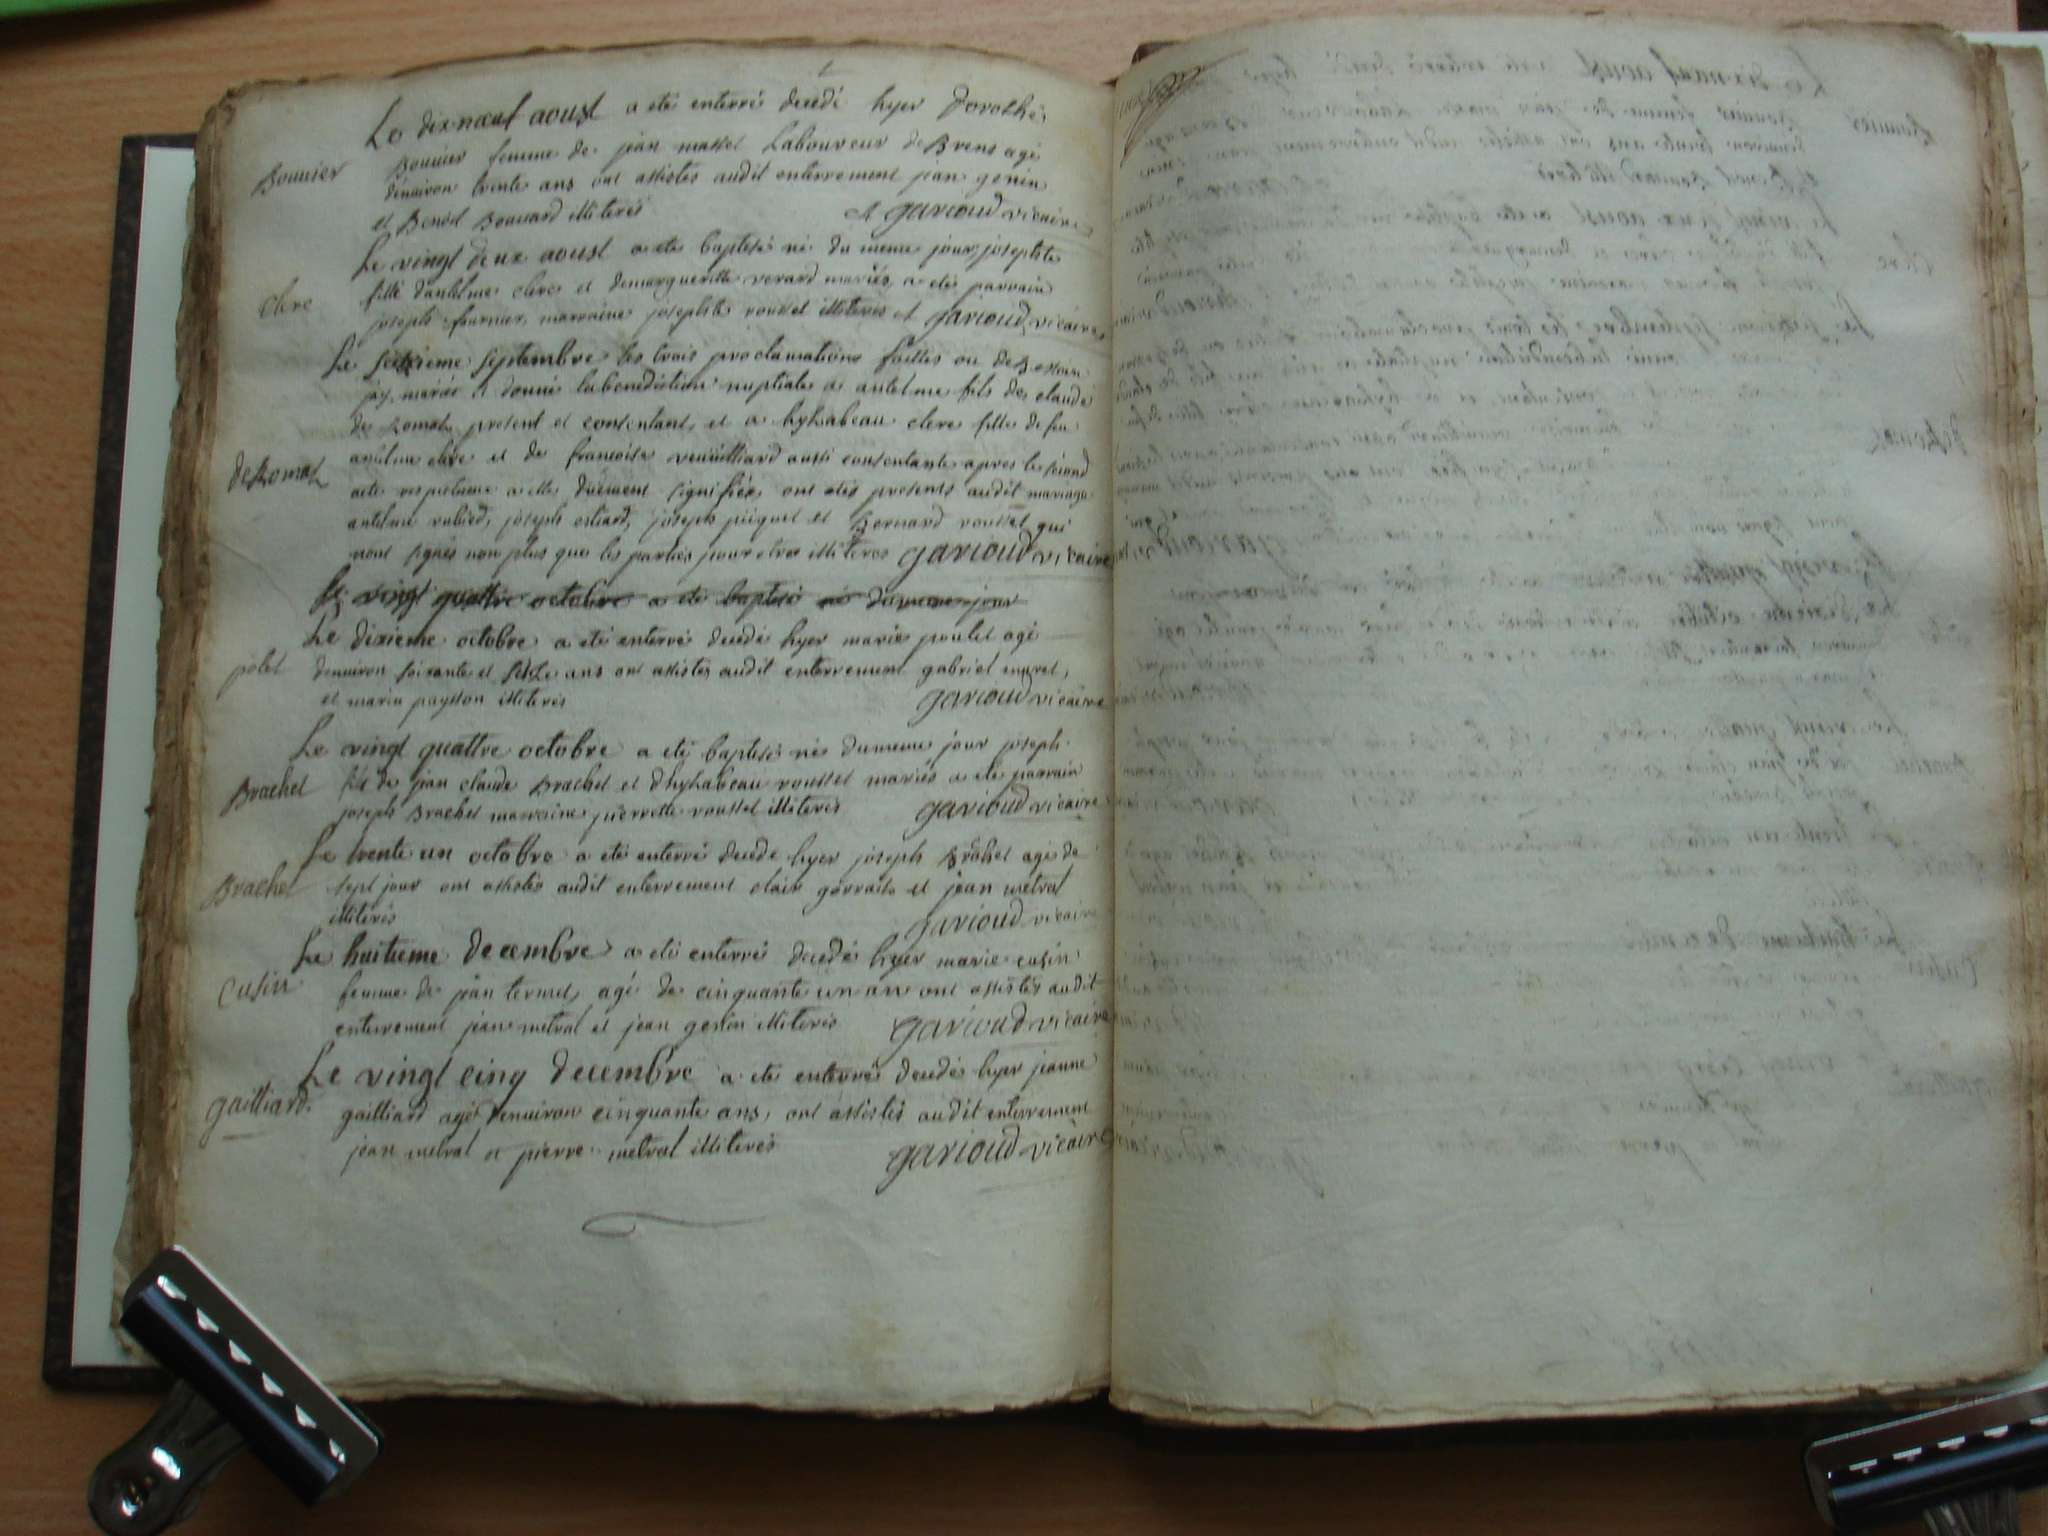 Le dixneuf aoust a eté enterré decedé hyer Dorothé
Bouvier
Bouvier femme de jean massel Laboureur de Brens agé
d'environ trente ans ont assistés audit enterrement jean genin
et Benoit Bouvard illiterés et garioud vicaire
Le vingt deux aoust a eté baptisé né du meme jour josephte
Clerc
fille d'antelme clerc et de margueritte verard mariés, a eté parrain
joseph fournier, marraine josephte roussel illiterés et garioud vicaire
Le septembre les trois proclamations faittes ou de
jay mariés et donné la benediction nuptiale a antelme fils de claude
deRomas
de Romas present et consentant, et a hyzabeau clerc fille de feu
antelme clerc et de francoise aussi consentante apres le second
acte respectueux a elle duëment signifiée ont etés presents audit mariage
antelme rubied, joseph joseph piquet et Bernard roussel qui
nont signés non plus que les parties pour etres illiteres garioud vicaire
Le vingt quattre octobre a eté baptisé né du meme jour
Le dixieme octobre a eté enterré decedé hyer marie poulet agé
polet
d'environ soixante et seize ans ont assistés audit enterrement gabriel muret,
et marin paysson illiterés garioud vicaire
Le vingt quattre octobre a eté baptisé né du meme jour joseph
Brachet
fils de jean claude Brachet et d'hyzabeau roussel mariés a eté parrain
joseph Brachet marraine pierrette roussel illiterés garioud vicaire
Le trente un octobre a eté enterré decedé hyer joseph Brâchet agé de
Brachet
sept jour ont assistés audit enterrement clair et jean metral
illiterés garioud vicaire
Le huitieme decembre a eté enterré decedé hyer marie cusin
Cusin
femme de jean ternet, agé de cinquante un an ont assistés audit
enterrement jean metral et jean genin illiterés garioud vicaire
Le vingt cinq decembre a eté enterré decedé hyer jeanne
gailliard
gailliard agé d'environ cinquante ans, ont assistés audit enterrement
jean metral et pierre metral illiterés garioud vicaire